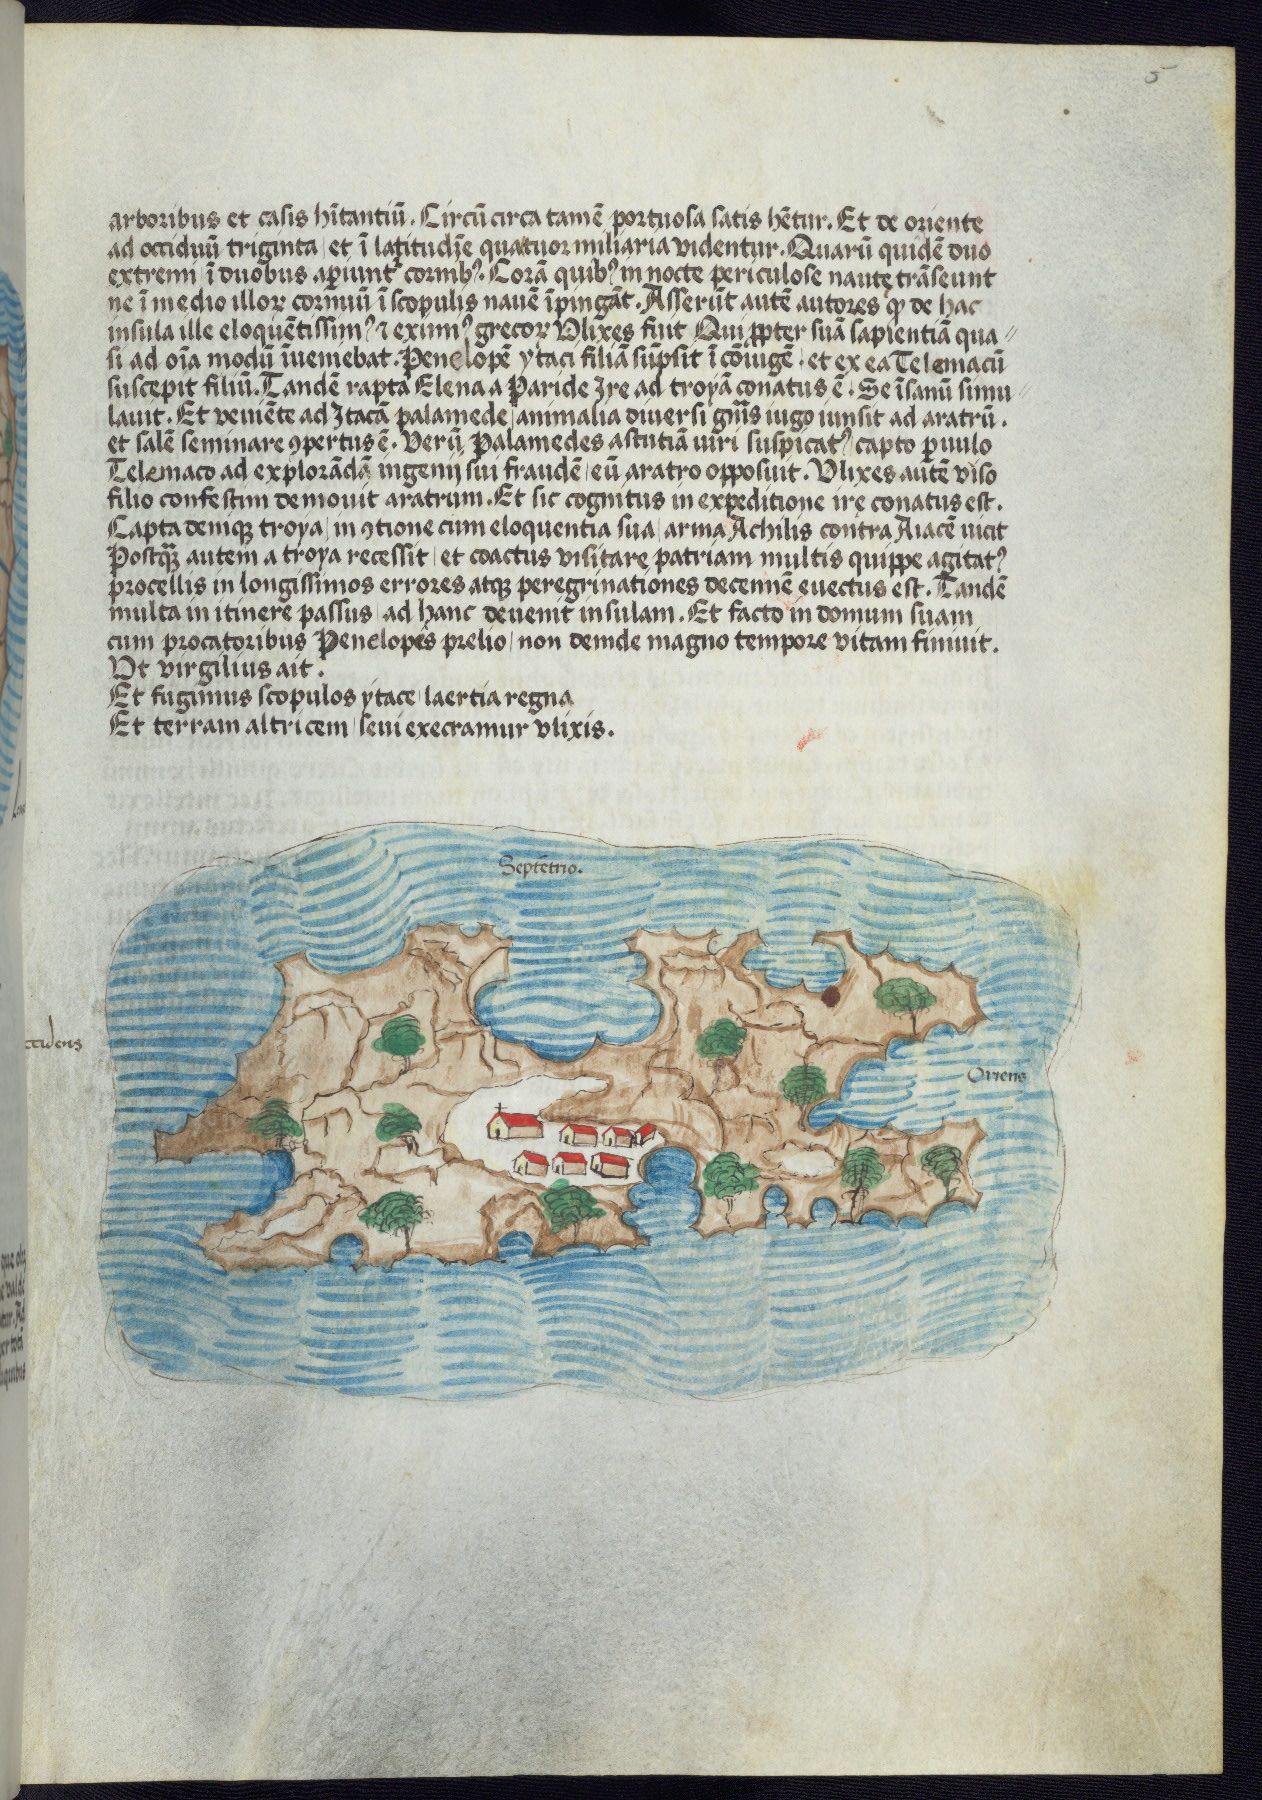 5
arboribus et casis hītantiū. Circū circa tamē portuosa satis hētur. Et de oriente
ad occiduū triginta / et ī latitudīe quatuor miliaria videntur. Quarū quidē duo
extremi ī duobus aꝑiuntᷣ cornibꝰ. Corā quibꝰ in nocte periculose nautę trāseunt
ne ī medio illoꝝ cornuū ī scopulis nauē īpingāt. Asserūt autē autores ꝙ de hac
insula ille eloquētissimꝰ ⁊ eximꝰ grecoꝝ Vlixes fuit Qui ꝓpter suā sapientiā qua〃
si ad oīa modū īueniebat. Penelopē ytaci filiā sūpsit ī cōiugē. et ex ea Telemacū
suscepit filiū. Tandē rapta Elena a Paride Ire ad troyā conatus ē. Se īsanū simu〃
lauit. Et veniēte ad Itacā palamede / animalia diuersi gn̄is iugo iunsit ad aratrū.
et salē seminare ꝯpertus ē. Verū Palamedes astutiā viri suspicatꝰ / capto ꝑuulo
Telemaco ad explorādā ingenij sui fraudē / eū aratro opposuit. Vlixes autē viso
filio confestim demouit aratrum. Et sic cognitus in expeditione ire conatus est.
Capta deniqꝫ troya / in ꝯtione cum eloquentia sua / arma Achilis contra Aiacē vicit
Postꝙ̄ autem a troya recessit / et coactus visitare patriam multis quippe agitatꝰ
procellis in longissimos errores atqꝫ peregrinationes decennē euectus est. Tandē
multa in itinere passus / ad hanc deuenit insulam. Et facto in domum suam
cum procatoribus Penelopes prelio / non deinde magno tempore vitam finiuit.
Vt virgilius ait.
Et fugimus scopulos ytace / laertia regna
Et terram altricem / seui execramur vlixis.
Septētrio.
Oriens